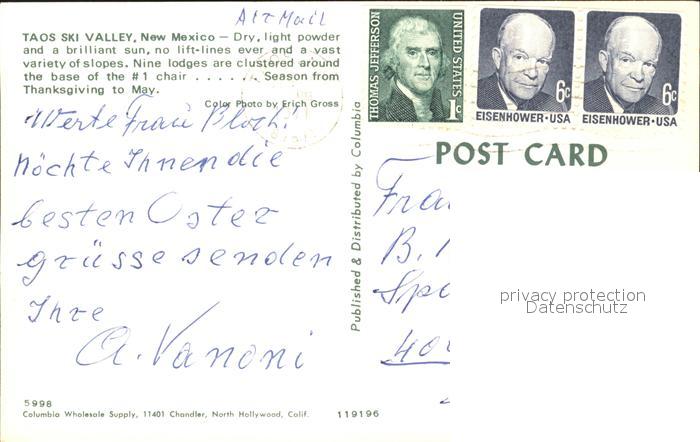 Air Mail
TAOS SKI VALLEY, New Mexico — Dry, light powder
and a brilliant sun, no lift-lines ever and a vast
variety of slopes. Nine lodges are clustered around
the base of the #1 chair . . . . . . Season from
Thanksgiving to May.
Color Photo by Erich Gross
Werte Frau Bloch!
Möchte Ihnen die
besten Oster
grüsse senden
Ihre
A. Vanoni
5998
Columbia Wholesale Supply, 11401 Chandler, North Hollywood, Calif.
119196
Published & Distributed by Columbia
THOMAS JEFFERSON
UNITED STATES
1c
6c
EISENHOWER·USA
6c
EISENHOWER·USA
POST CARD
Frau
B.
Spe
40
privacy protection
Datenschutz